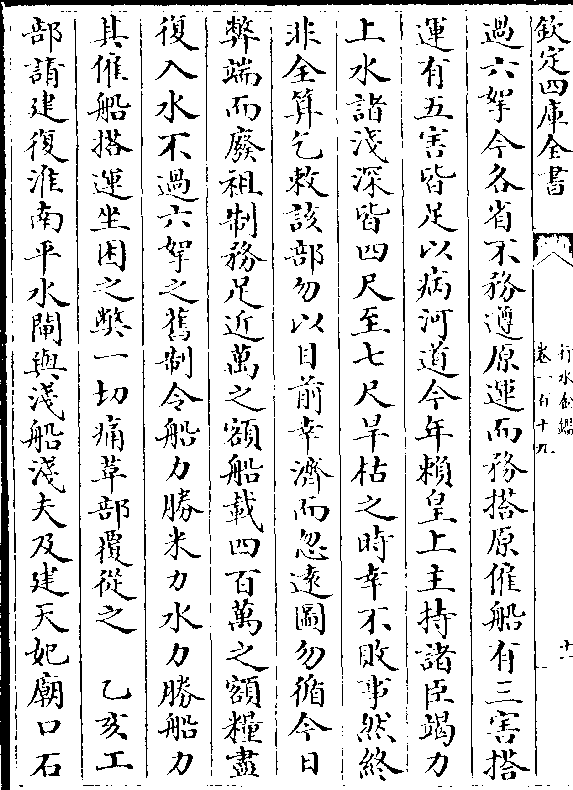 欽定四庫全書
行水金鑑
卷一百十九
十一
過六拏今各省不務遵原運而務搭原僱船有三害搭
運有五害皆足以病河道今年賴皇上主持諸臣竭力
上水諸淺深皆四尺至七尺旱枯之時幸不敗事然終
非全算乞敕該部勿以目前幸濟而忽遠圖勿循今日
弊端而廢祖制務足近萬之額船載四百萬之額糧盡
復入水不過六拏之舊制令船力勝米力水力勝船力
其僱船搭運坐困之弊一切痛革部覆從之　乙亥工
部請建復淮南平水閘與淺船淺夫及建天妃廟口石